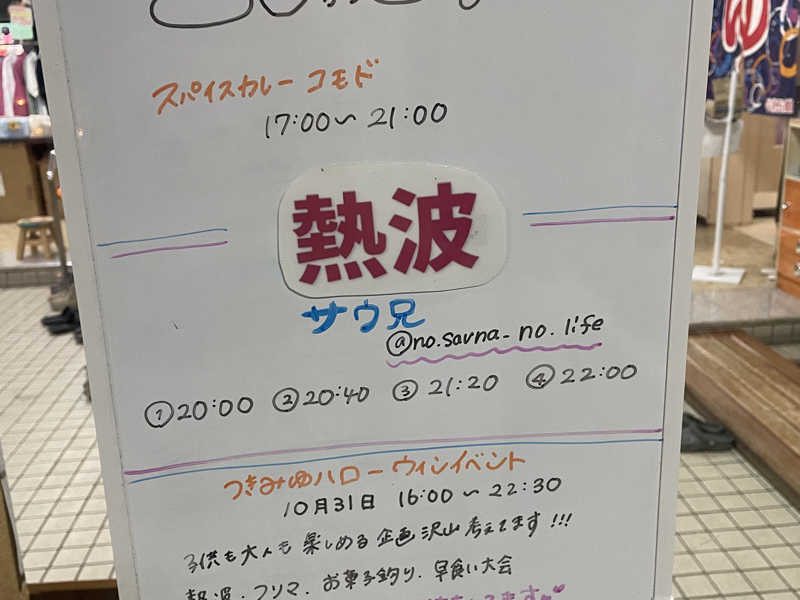 スパイスカレー コモド
17:00〜21:00
熱波
サウ兄
@no.sauna_no.life
①20:00 ②20:40 ③21:20 ④22:00
つきみゆハローウィンイベント
10月31日 16:00〜22:30
子供も大人も楽しめる企画沢山考えてます!!!
熱波・フリマ・お菓子釣り・早食い大会
ゆ